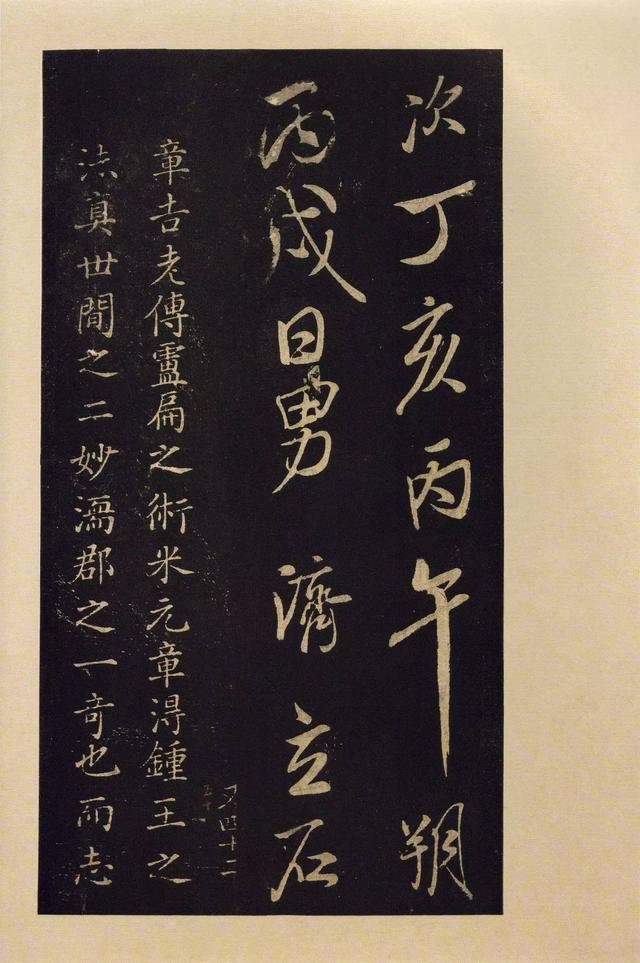 次丁亥丙午朔
丙戌日男濟立石
又四十二
五十一
章吉老傳盧扁之術米元章淂鍾王之
法真世間之二妙濡郡之一竒也而志